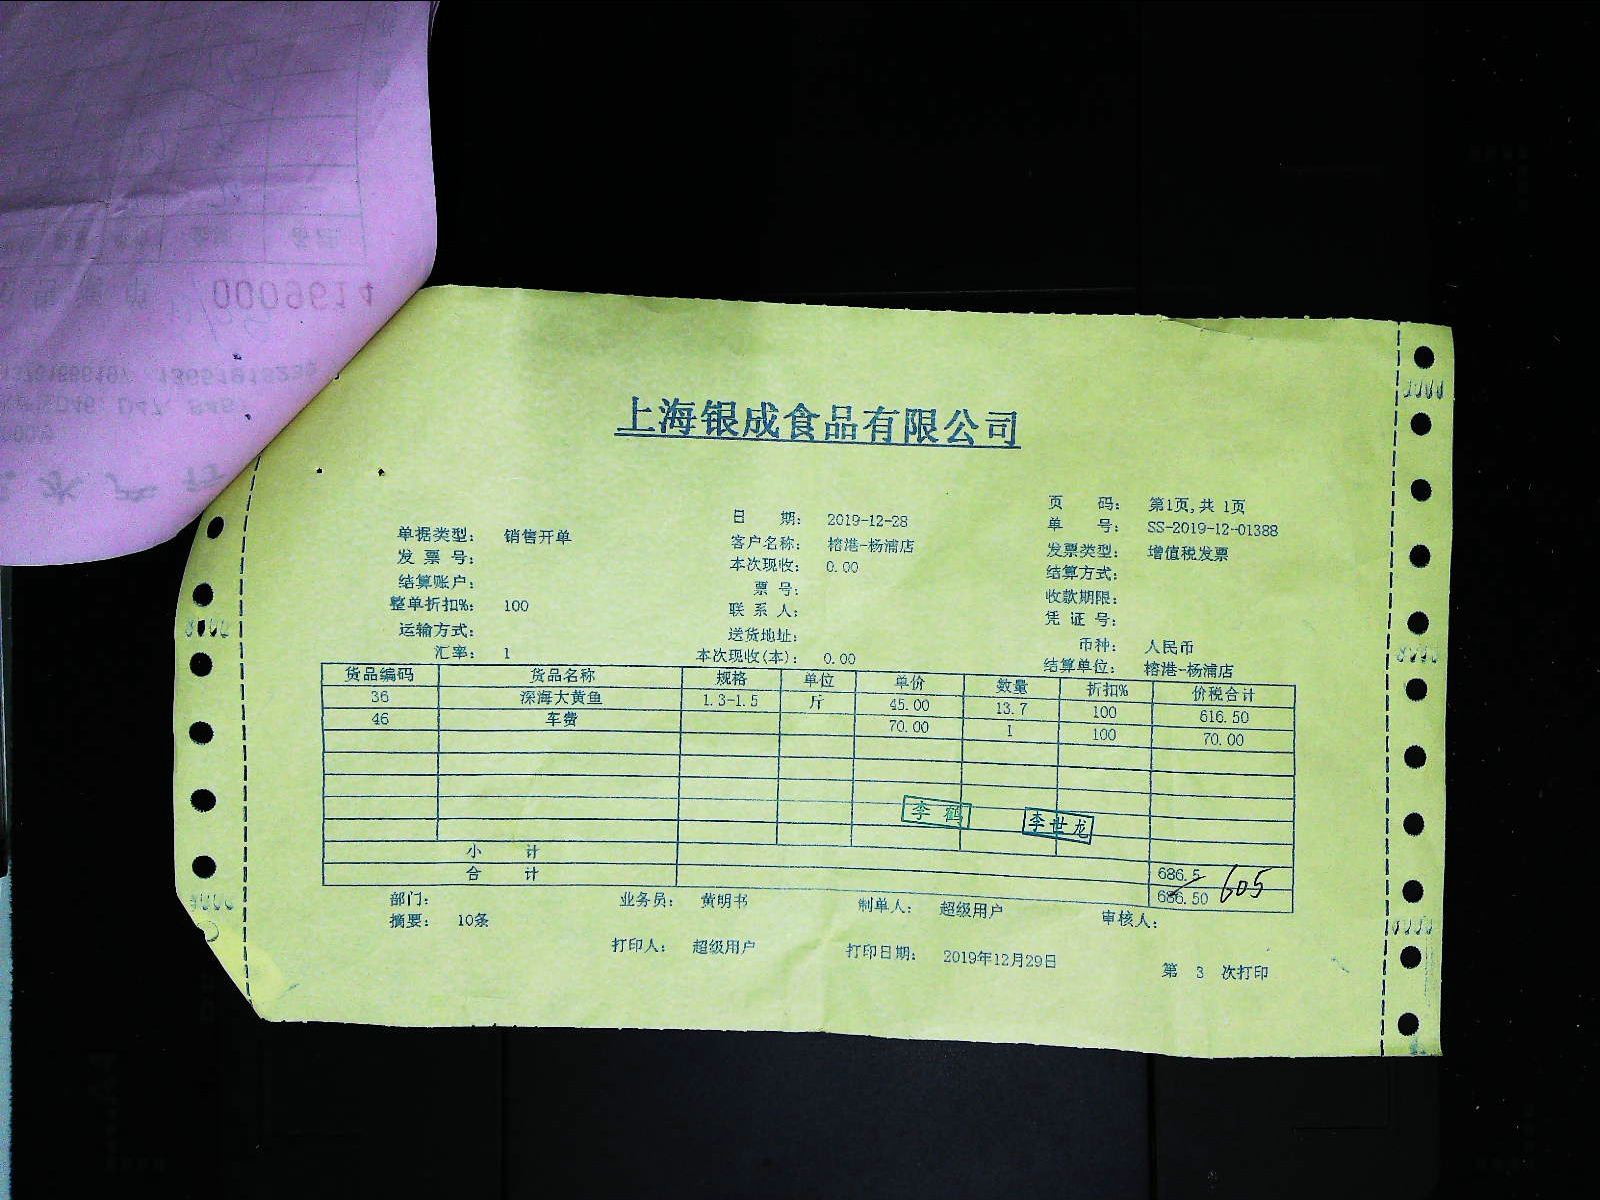 0009614
上海银成食品有限公司
页 码: 第1页,共 1页
日 期: 2019-12-28
单 号: SS-2019-12-01388
单据类型: 销售开单
客户名称: 榕港-杨浦店
发票类型: 增值税发票
发 票 号:
本次现收: 0.00
结算方式:
结算账户:
票 号:
收款期限:
整单折扣%: 100
联 系 人:
凭 证 号:
运输方式:
送货地址:
币种: 人民币
汇率: 1
本次现收(本): 0.00
结算单位: 榕港-杨浦店
货品编码 货品名称 规格 单位 单价 数量 折扣% 价税合计
36 深海大黄鱼 1.3-1.5 斤 45.00 13.7 100 616.50
46 车费 70.00 1 100 70.00
李 鹤 李世龙
小 计 686.5
合 计 686.50 605
部门: 业务员: 黄明书 制单人: 超级用户 审核人:
摘要: 10条
打印人: 超级用户 打印日期: 2019年12月29日 第 3 次打印